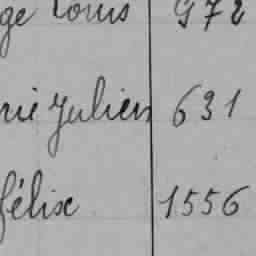 ge Louis 972
rie Julien 631
félix 1556